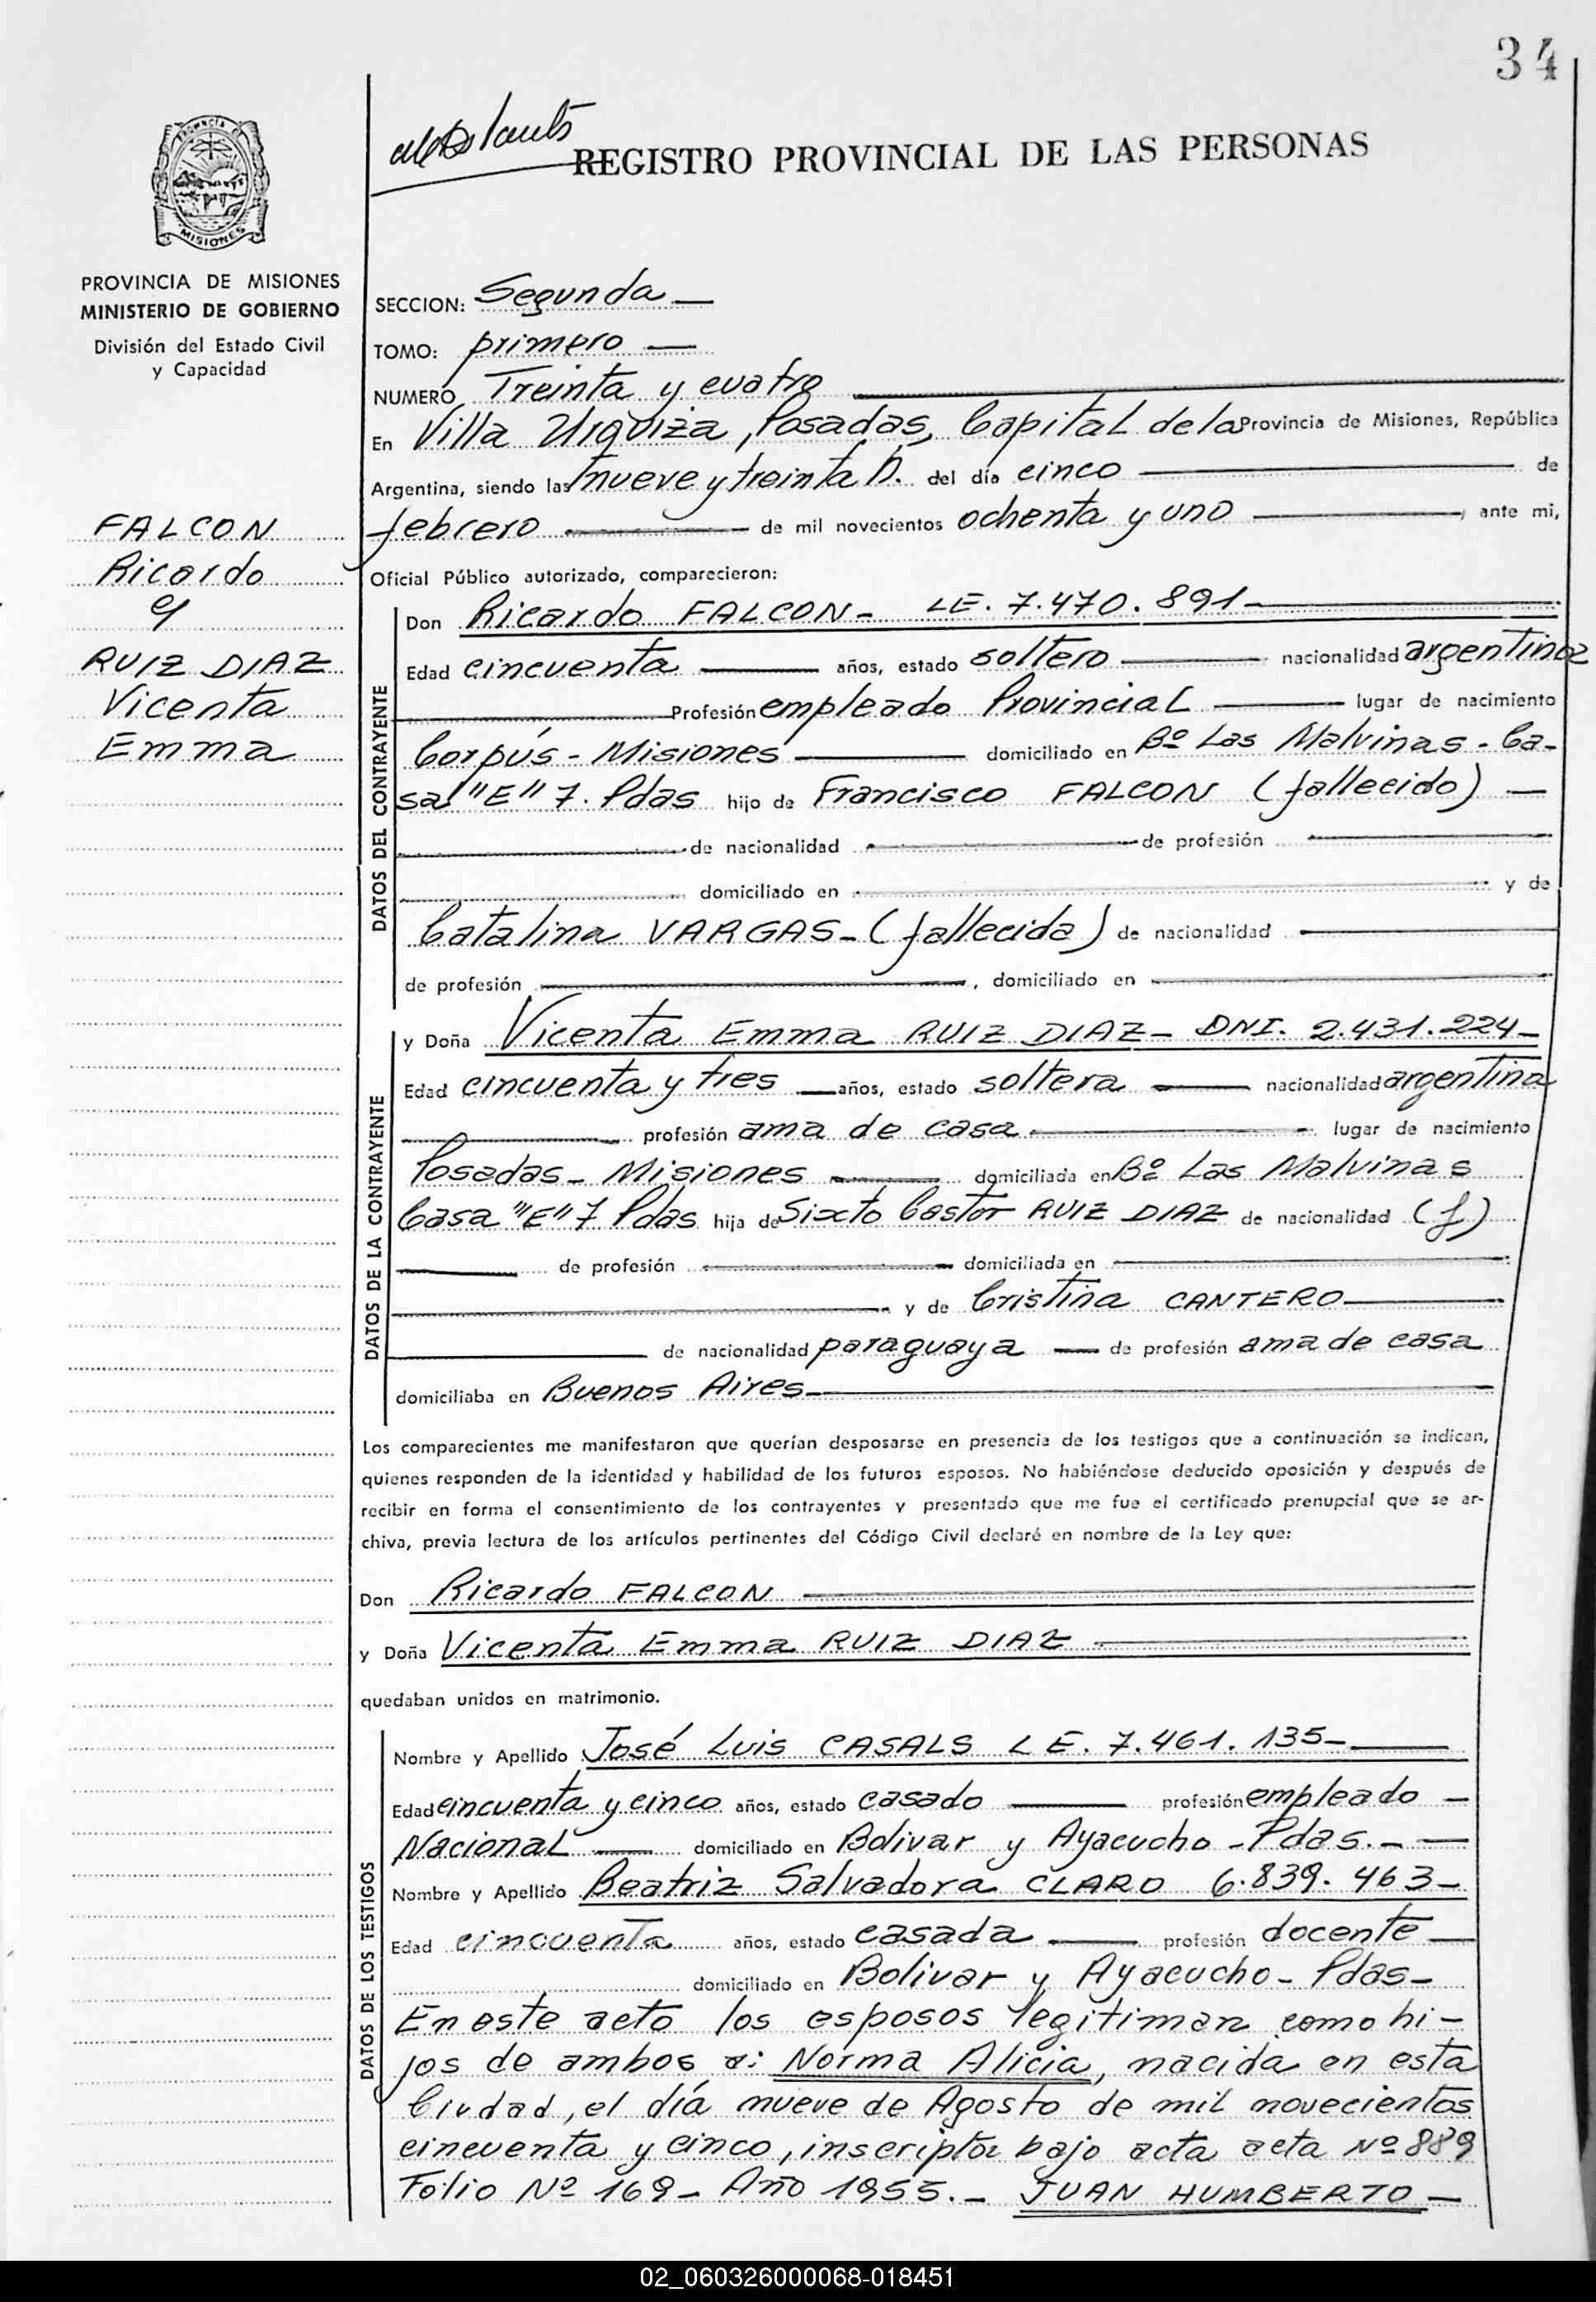 34
REGISTRO PROVINCIAL DE LAS PERSONAS
PROVINCIA DE
MISIONES
PROVINCIA DE MISIONES
MINISTERIO DE GOBIERNO
División del Estado Civil
y Capacidad
SECCION: Segunda
TOMO: primero
NUMERO Treinta y cuatro
En Villa Urquiza, Posadas, Capital de la Provincia de Misiones, República
Argentina, siendo las nueve y treinta h. del día cinco de
febrero de mil novecientos ochenta y uno, ante mi,
Oficial Público autorizado, comparecieron:
FALCON
Ricardo
y
RUIZ DIAZ
Vicenta
Emma
DATOS DEL CONTRAYENTE
Don Ricardo FALCON- LE. 7.470.891-
Edad cincuenta años, estado soltero nacionalidad argentina
Profesión empleado Provincial lugar de nacimiento
Corpús - Misiones domiciliado en Bº Las Malvinas - Ca-
sa "E" 7. Pdas hijo de Francisco FALCON (fallecido) -
de nacionalidad de profesión
domiciliado en y de
Catalina VARGAS - (fallecida) de nacionalidad
de profesión , domiciliado en
DATOS DE LA CONTRAYENTE
y Doña Vicenta Emma RUIZ DIAZ - DNI. 2.431.224-
Edad cincuenta y tres años, estado soltera nacionalidad argentina
profesión ama de casa lugar de nacimiento
Posadas - Misiones domiciliada en Bº Las Malvinas
Casa "E" 7 Pdas hija de Sixto Castor RUIZ DIAZ de nacionalidad (f)
de profesión domiciliada en
y de Cristina CANTERO
de nacionalidad paraguaya de profesión ama de casa
domiciliaba en Buenos Aires-
Los comparecientes me manifestaron que querían desposarse en presencia de los testigos que a continuación se indican,
quienes responden de la identidad y habilidad de los futuros esposos. No habiéndose deducido oposición y después de
recibir en forma el consentimiento de los contrayentes y presentado que me fue el certificado prenupcial que se ar-
chiva, previa lectura de los artículos pertinentes del Código Civil declaré en nombre de la Ley que:
Don Ricardo FALCON
y Doña Vicenta Emma RUIZ DIAZ
quedaban unidos en matrimonio.
DATOS DE LOS TESTIGOS
Nombre y Apellido José Luis CASALS LE. 7.461.135-
Edad cincuenta y cinco años, estado casado profesión empleado -
Nacional domiciliado en Bolivar y Ayacucho - Pdas. -
Nombre y Apellido Beatriz Salvadora CLARO 6.839.463-
Edad cincuenta años, estado casada profesión docente
domiciliado en Bolivar y Ayacucho - Pdas -
En este acto los esposos legitiman como hi-
jos de ambos a: Norma Alicia, nacida en esta
Ciudad, el día nueve de Agosto de mil novecientos
cincuenta y cinco, inscripta bajo acta acta Nº 889
Folio Nº 169 - Año 1955. - JUAN HUMBERTO -
02_060326000068-018451